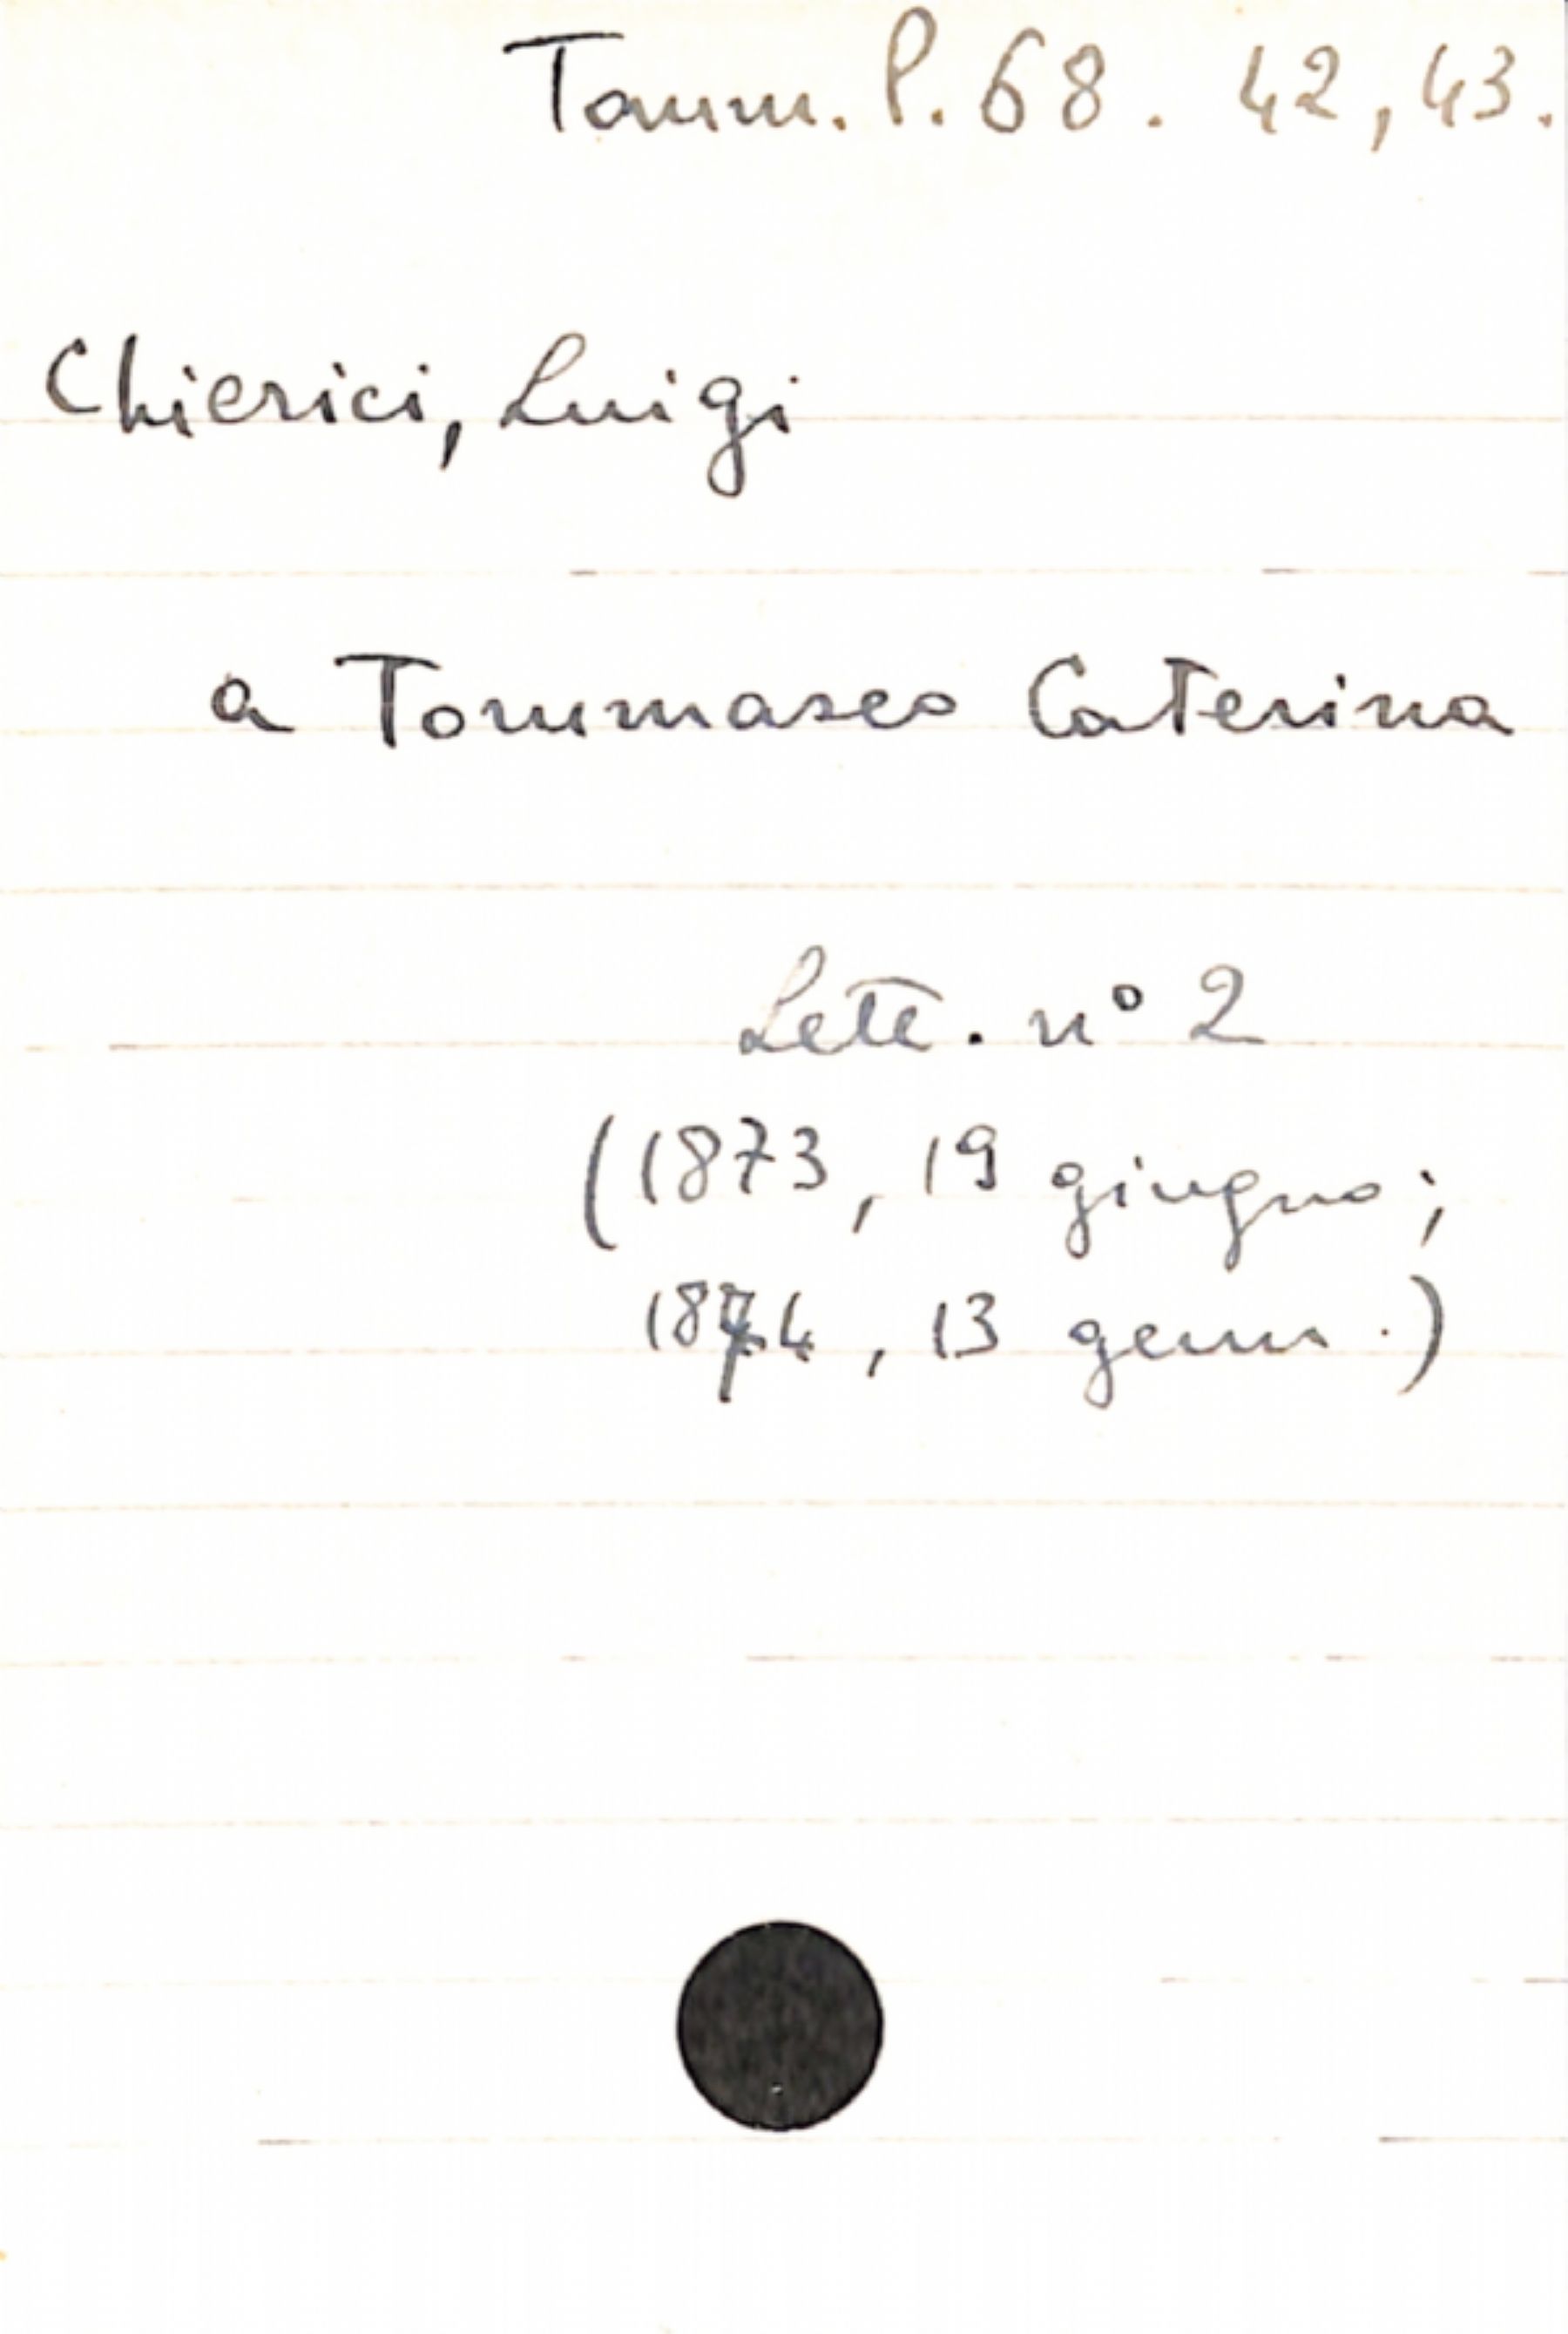 Tomm. P. 68. 42, 43.
Chierici, Luigi
a Tommaseo Caterina
Lett. nº 2
(1873, 19 giugno;
1874, 13 genn.)